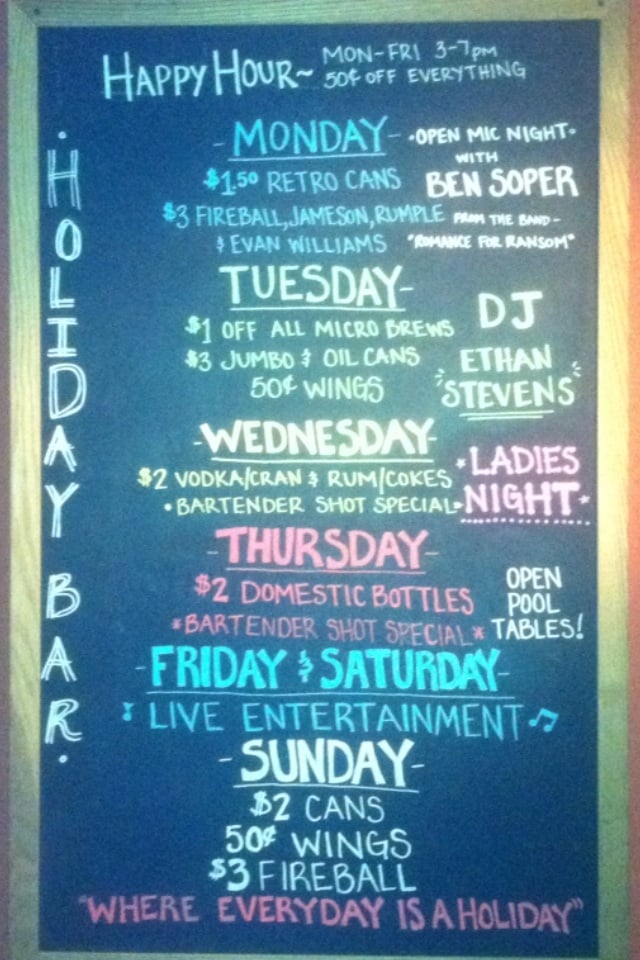 HAPPY HOUR~ MON-FRI 3-7pm
50¢ OFF EVERYTHING
·HOLIDAY BAR·
-MONDAY-
$1.50 RETRO CANS
$3 FIREBALL, JAMESON, RUMPLE
& EVAN WILLIAMS
·OPEN MIC NIGHT·
WITH
BEN SOPER
FROM THE BAND-
"ROMANCE FOR RANSOM"
TUESDAY-
$1 OFF ALL MICRO BREWS
$3 JUMBO & OIL CANS
50¢ WINGS
DJ
ETHAN
STEVENS
-WEDNESDAY-
$2 VODKA/CRAN & RUM/COKES
·BARTENDER SHOT SPECIAL·
*LADIES
NIGHT*
-THURSDAY-
$2 DOMESTIC BOTTLES
*BARTENDER SHOT SPECIAL*
OPEN
POOL
TABLES!
-FRIDAY & SATURDAY-
♪ LIVE ENTERTAINMENT ♫
-SUNDAY-
$2 CANS
50¢ WINGS
$3 FIREBALL
"WHERE EVERYDAY IS A HOLIDAY"